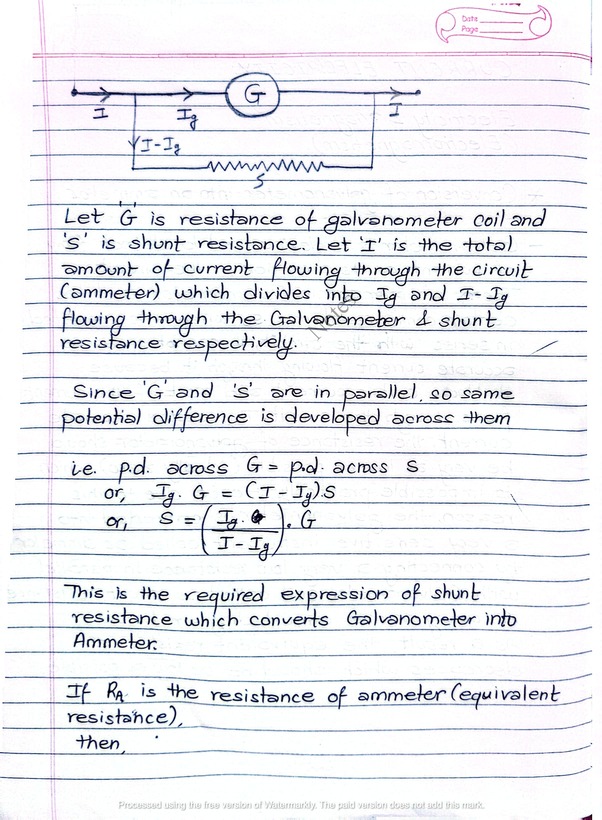 Date
Page
G
I
Ig
I
I-Ig
S
Let 'G' is resistance of galvanometer coil and
'S' is shunt resistance. Let 'I' is the total
amount of current flowing through the circuit
(ammeter) which divides into Ig and I-Ig
flowing through the Galvanometer & shunt
resistance respectively.
Since 'G' and 'S' are in parallel, so same
potential difference is developed across them
i.e. p.d. across G = p.d. across S
or, Ig. G = (I - Ig).S
or, S = (Ig. / I - Ig). G
This is the required expression of shunt
resistance which converts Galvanometer into
Ammeter.
If RA is the resistance of ammeter (equivalent
resistance),
then,
Processed using the free version of Watermarkly. The paid version does not add this mark.